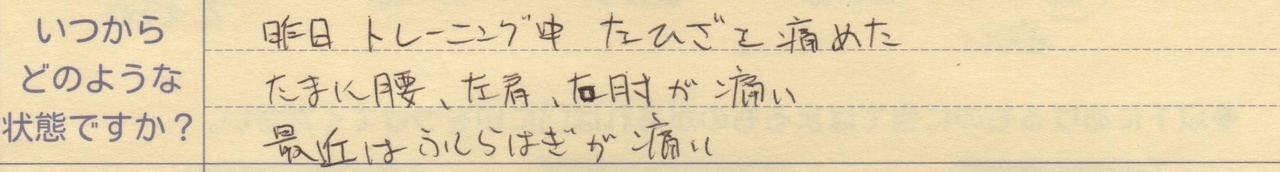 いつから
どのような
状態ですか？
昨日 トレーニング中 左ひざを痛めた
たまに腰、左肩、右肘が痛い
最近はふくらはぎが痛い